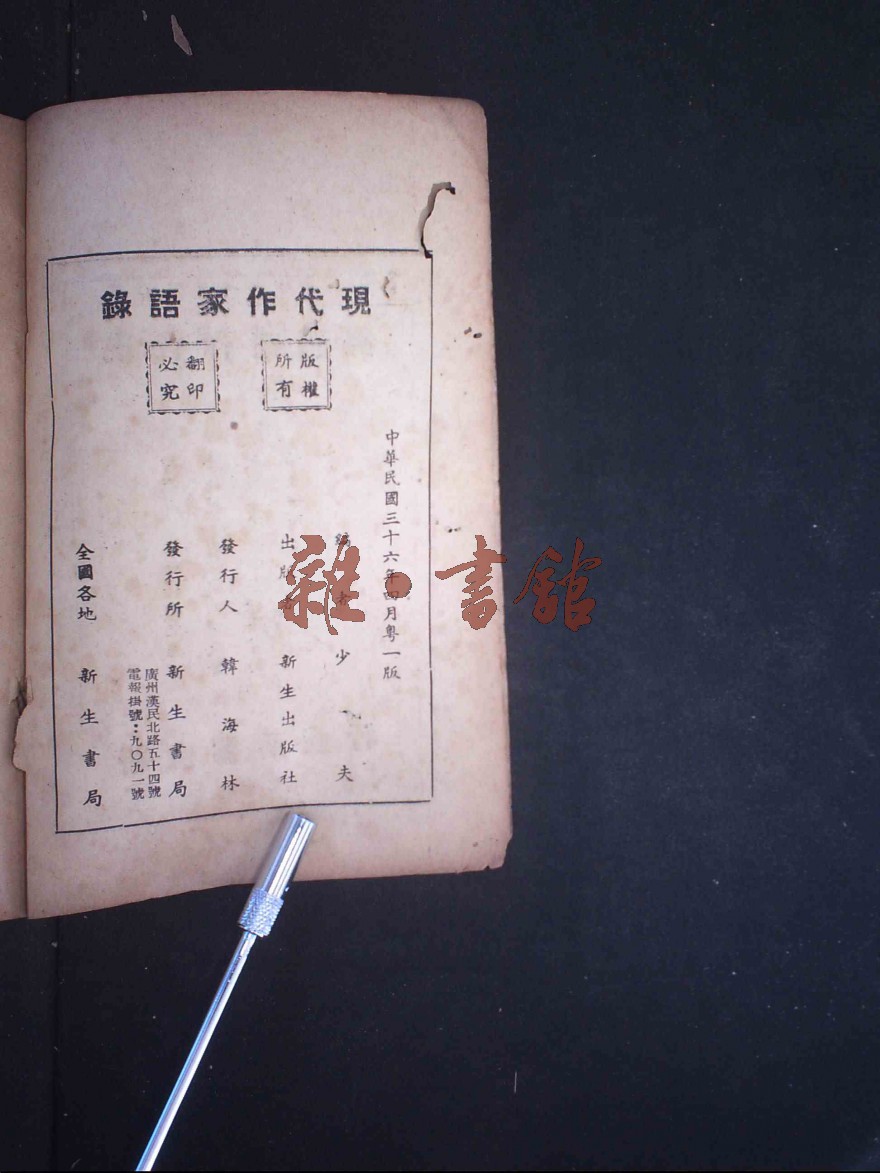 現代作家語錄
版權所有
翻印必究
中華民國三十六年四月粵一版
少夫
出版 新生出版社
發行人 韓海林
發行所 新生書局
廣州漢民北路五十四號
電報掛號：九〇九一號
全國各地 新生書局
雜·書館